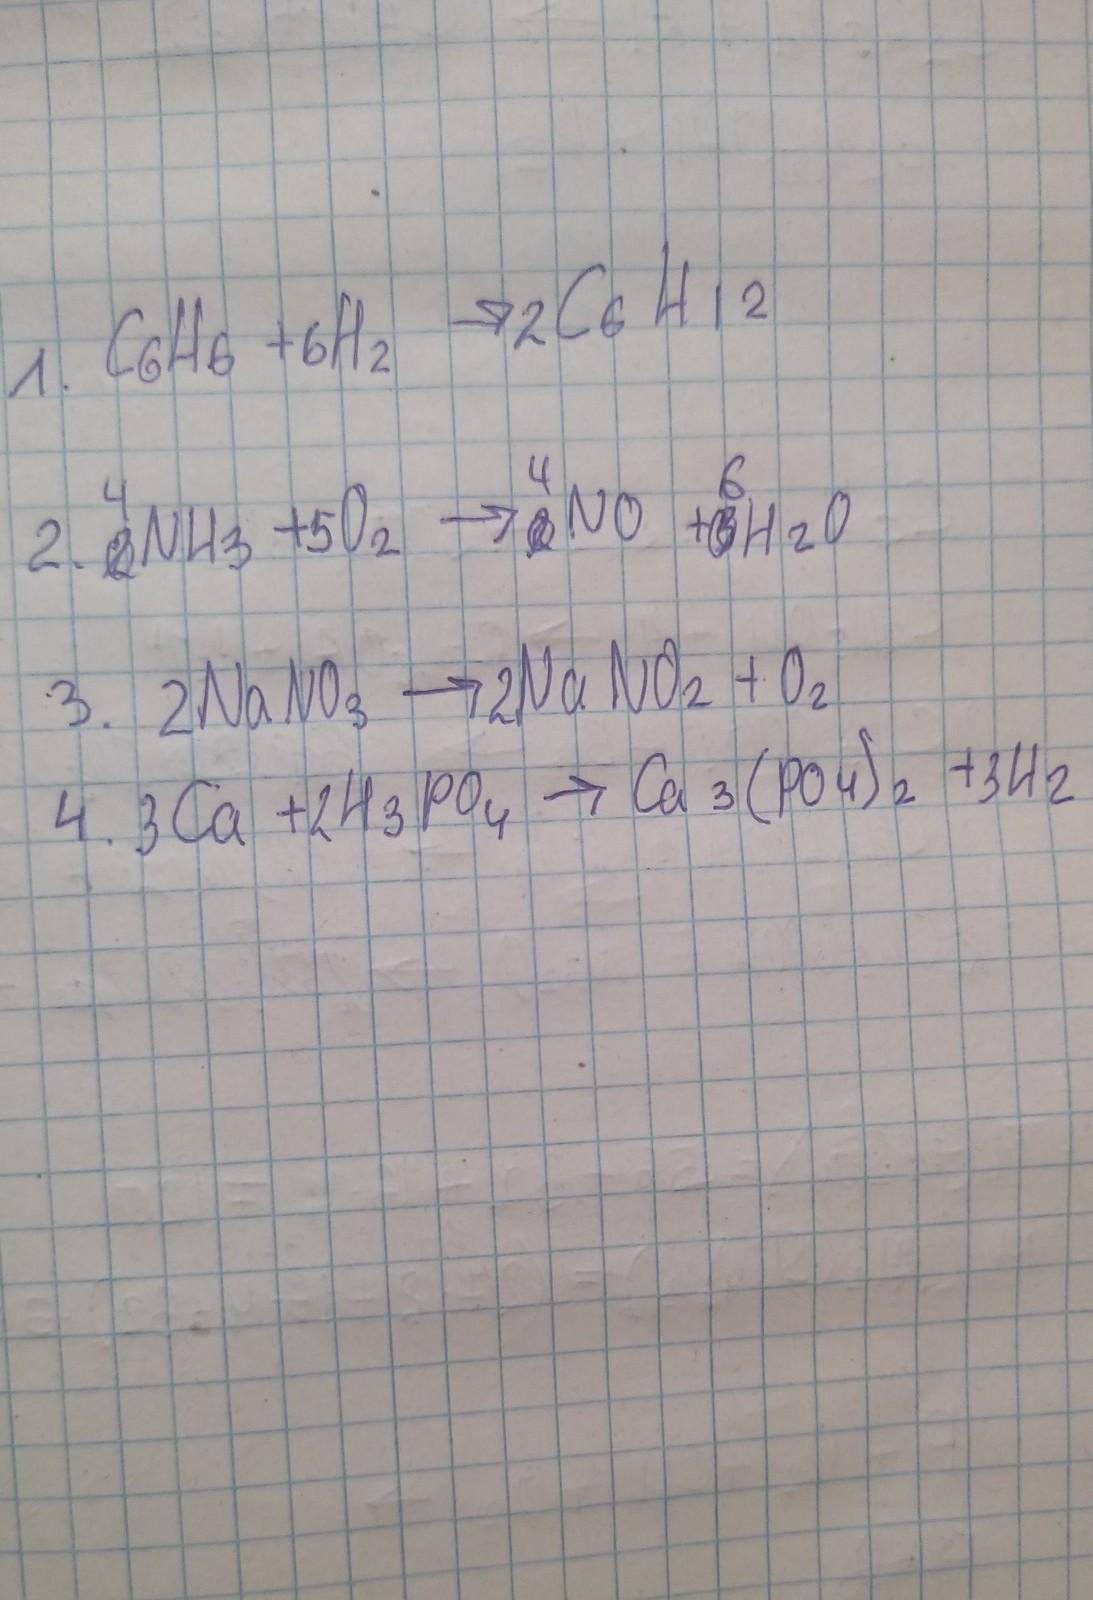 1. C6H6 + 6H2 → 2C6H12
2. 4NH3 + 5O2 → 4NO + 6H2O
3. 2NaNO3 → 2NaNO2 + O2
4. 3Ca + 2H3PO4 → Ca3(PO4)2 + 3H2